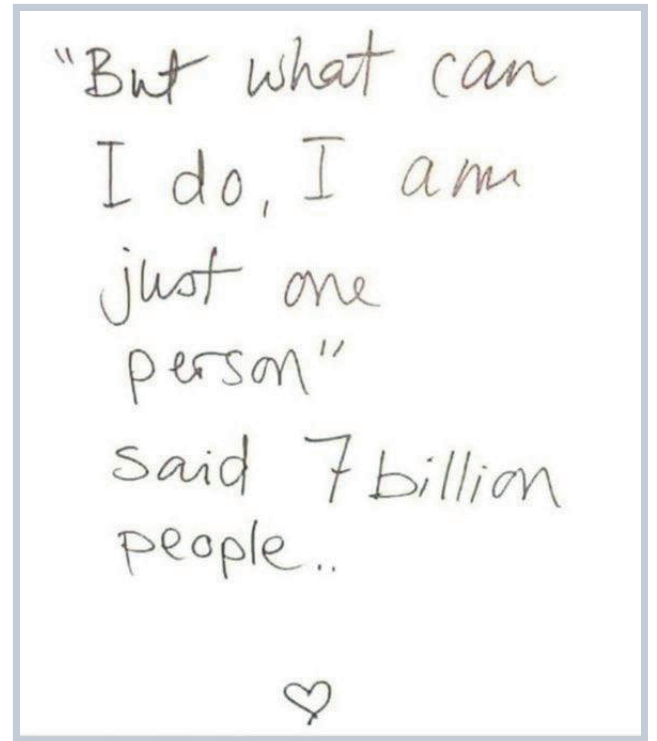 "But what can
I do, I am
just one
person"
said 7 billion
people..